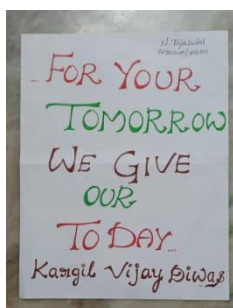 N. Tejaswini
.. FOR YOUR
TOMORROW
WE GIVE
OUR
TODAY...
Kargil Vijay Diwas